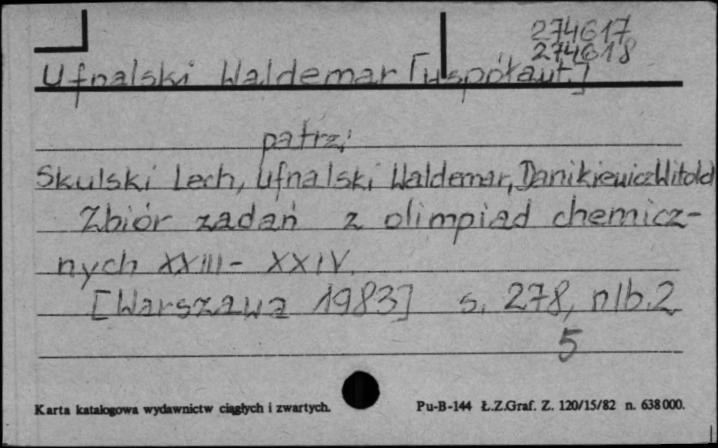 274617
274618
Ufnalski Waldemar [współaut.]
patrz:
Skulski Lech, Ufnalski Waldemar, Danikiewicz Witold
Zbiór zadań z olimpiad chemicz-
nych XXIII - XXIV.
[Warszawa 1983] s. 278, nlb. 2
5
Karta katalogowa wydawnictw ciągłych i zwartych. Pu-B-144 Ł.Z.Graf. Z. 120/15/82 n. 638000.